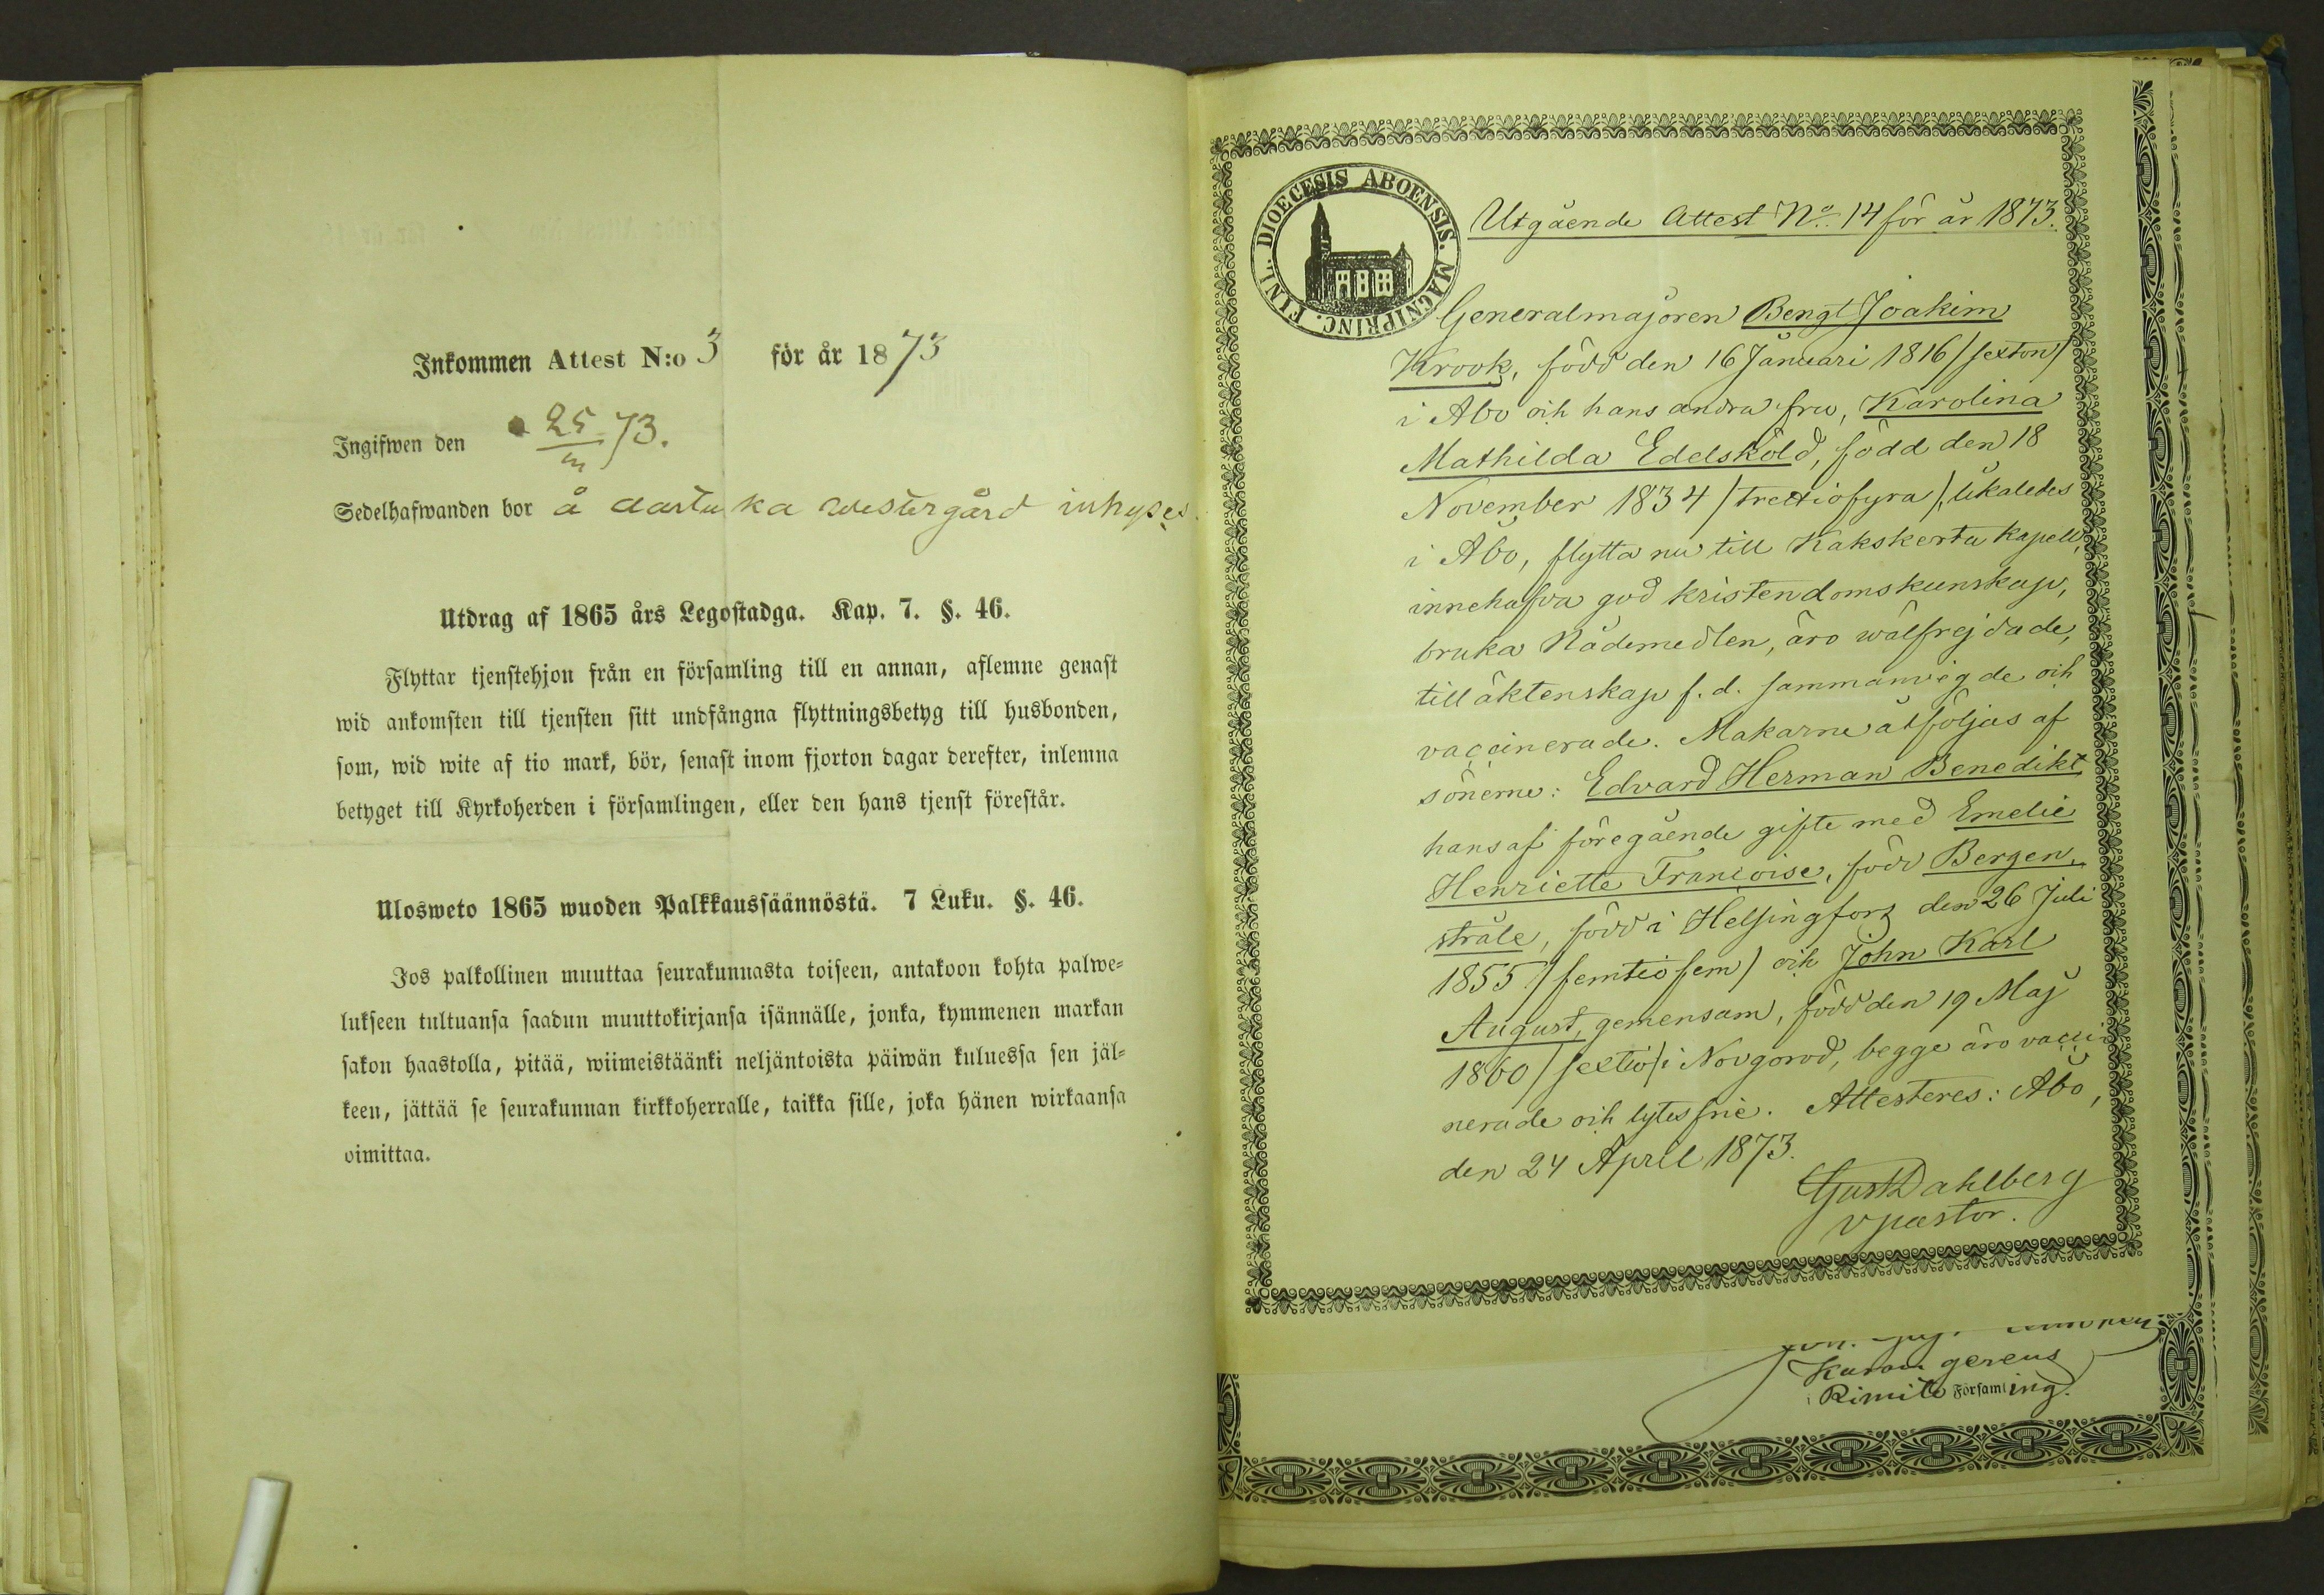 Inkommen Attest N:o 3 för år 1873
Ingifwen den 25/III 73.
Sedelhafwanden bor å aartuka westergård inhyses.
Utdrag af 1865 års Legostadga. Kap. 7. §. 46.
Flyttar tjenstehjon från en församling till en annan, aflemne genast
wid ankomsten till tjensten sitt undfångna flyttningsbetyg till husbonden,
som, wid wite af tio mark, bör, senast inom fjorton dagar derefter, inlemna
betyget till Kyrkoherden i församlingen, eller den hans tjenst förestår.
Ulosweto 1865 wuoden Palkkaussäännöstä. 7 Luku. §. 46.
Jos palkollinen muuttaa seurakunnasta toiseen, antakoon kohta palwe-
lukseen tultuansa saadun muuttokirjansa isännälle, jonka, kymmenen markan
sakon haastolla, pitää, wiimeistäänki neljäntoista päiwän kuluessa sen jäl-
keen, jättää se seurakunnan kirkkoherralle, taikka sille, joka hänen wirkaansa
oimittaa.
DIOECESIS ABOENSIS. MAGNIPRINC. FINL.
Utgående Attest No. 14 för år 1873.
Generalmajoren Bengt Joakim
Krook, född den 16 Januari 1816 /sexton/
i Åbo och hans andra fru, Karolina
Mathilda Edelsköld, född den 18
November 1834 /trettiofyra/, likaledes
i Åbo, flytta nu till Kakskerta kapell,
innehafva god kristendomskunskap,
bruka Nådemedlen, äro wälfrejdade,
till äktenskap f. d. sammanvigde och
vaccinerade. Makarne åtföljas af
sönerne: Edvard Herman Benedikt
hans af föregående gifte med Emelie
Henriette Françoise, född Bergen-
stråle, född i Helsingfors den 26 Juli
1855 /femtiofem/ och John Karl
August, gemensam, född den 19 Maj
1860 /sextio/ i Novgorod, begge äro vacci-
nerade och lytesfrie. Attesteres: Åbo,
den 24 April 1873.
Gust Dahlberg
v pastor.
gerens
Rimito Församling.